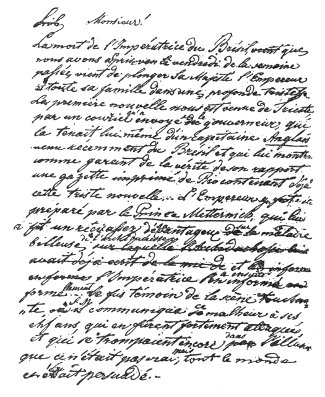 Monsieur!
La mort de l'Impératrice du Brésil vient que
nous avons apris le vendredi de la semaine
passée, vient de plonger Sa Majesté l'Empereur
et toute sa famille dans une profonde tristesse
La première nouvelle nous est venue de Trieste
par un courier envoyé du Gouverneur, qui
la tenait lui même d'un Capitaine Anglais
venu récemment du Bresil et qui lui montra
comme garant de la verité de son rapport
une gazette imprimé de Rio contenant déjà
cette triste nouvelle. L'Empereur y fut
préparé par le Prince Metternich, qui lui
fit un récit de la maladie
bilieuse sur laquelle
avait déjà écrit
l'Impératrice
forme Je fus temoin de la scène
où il communiqua ce malheur à ses
enfans, qui en furent fortement
et qui se trompaient encore dans
que ce n'était pas vrai, mais tout le monde
en était persuadé.